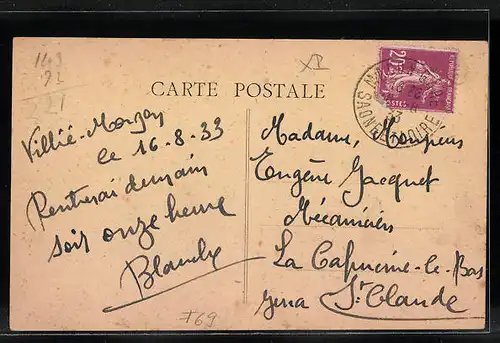 143
92
221
CARTE POSTALE
20c
POSTES
Villié-Morgon
le 16-8-33
Rentrerai demain
soir onze heure
Blanche
Madame, Monsieur
Eugène Jacquet
Mécanicien
La Capucine-le-Bas
St Claude
769